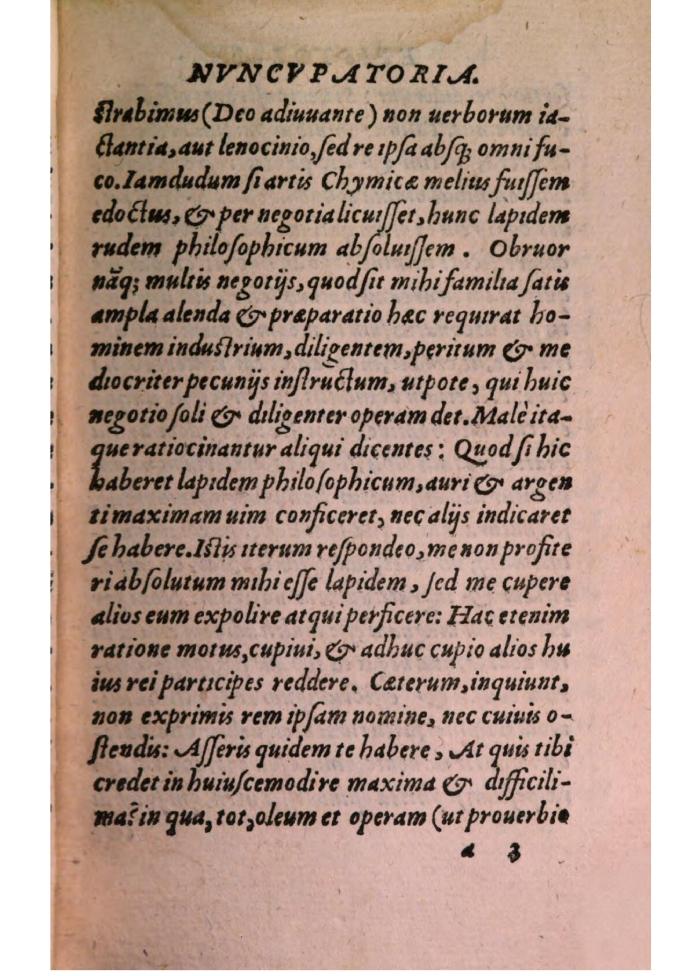 NVNCVPATORIA.
strabimus (Deo adiuuante) non uerborum ia-
ctantia, aut lenocinio, sed re ipsa absq; omni fu-
co. Iamdudum si artis Chymicæ melius fuissem
edoctus, & per negotia licuisset, hunc lapidem
rudem philosophicum absoluissem. Obruor
nãq; multis negotijs, quod sit mihi familia satis
ampla alenda & præparatio hæc requirat ho-
minem industrium, diligentem, peritum & me
diocriter pecunijs instructum, utpote, qui huic
negotio soli & diligenter operam det. Malè ita-
que ratiocinantur aliqui dicentes: Quod si hic
haberet lapidem philosophicum, auri & argen
ti maximam uim conficeret, nec alijs indicaret
se habere. Istis iterum respondeo, me non profite
ri absolutum mihi esse lapidem, sed me cupere
alios eum expolire atqui perficere: Hac etenim
ratione motus, cupiui, & adhuc cupio alios hu
ius rei participes reddere. Cæterum, inquiunt,
non exprimis rem ipsam nomine, nec cuiuis o-
stendis: Asseris quidem te habere, At quis tibi
credet in huiuscemodi re maxima & difficili-
ma? in qua, tot, oleum et operam (ut prouerbio
a 3